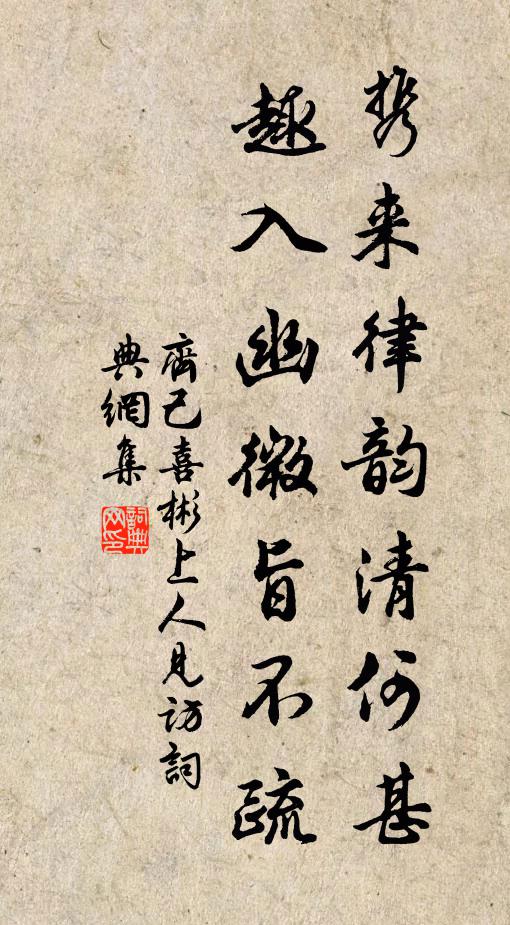 携来律韵清何甚
趣入幽微旨不疏
齊己喜彬上人見訪詞
典網集
詞典网印